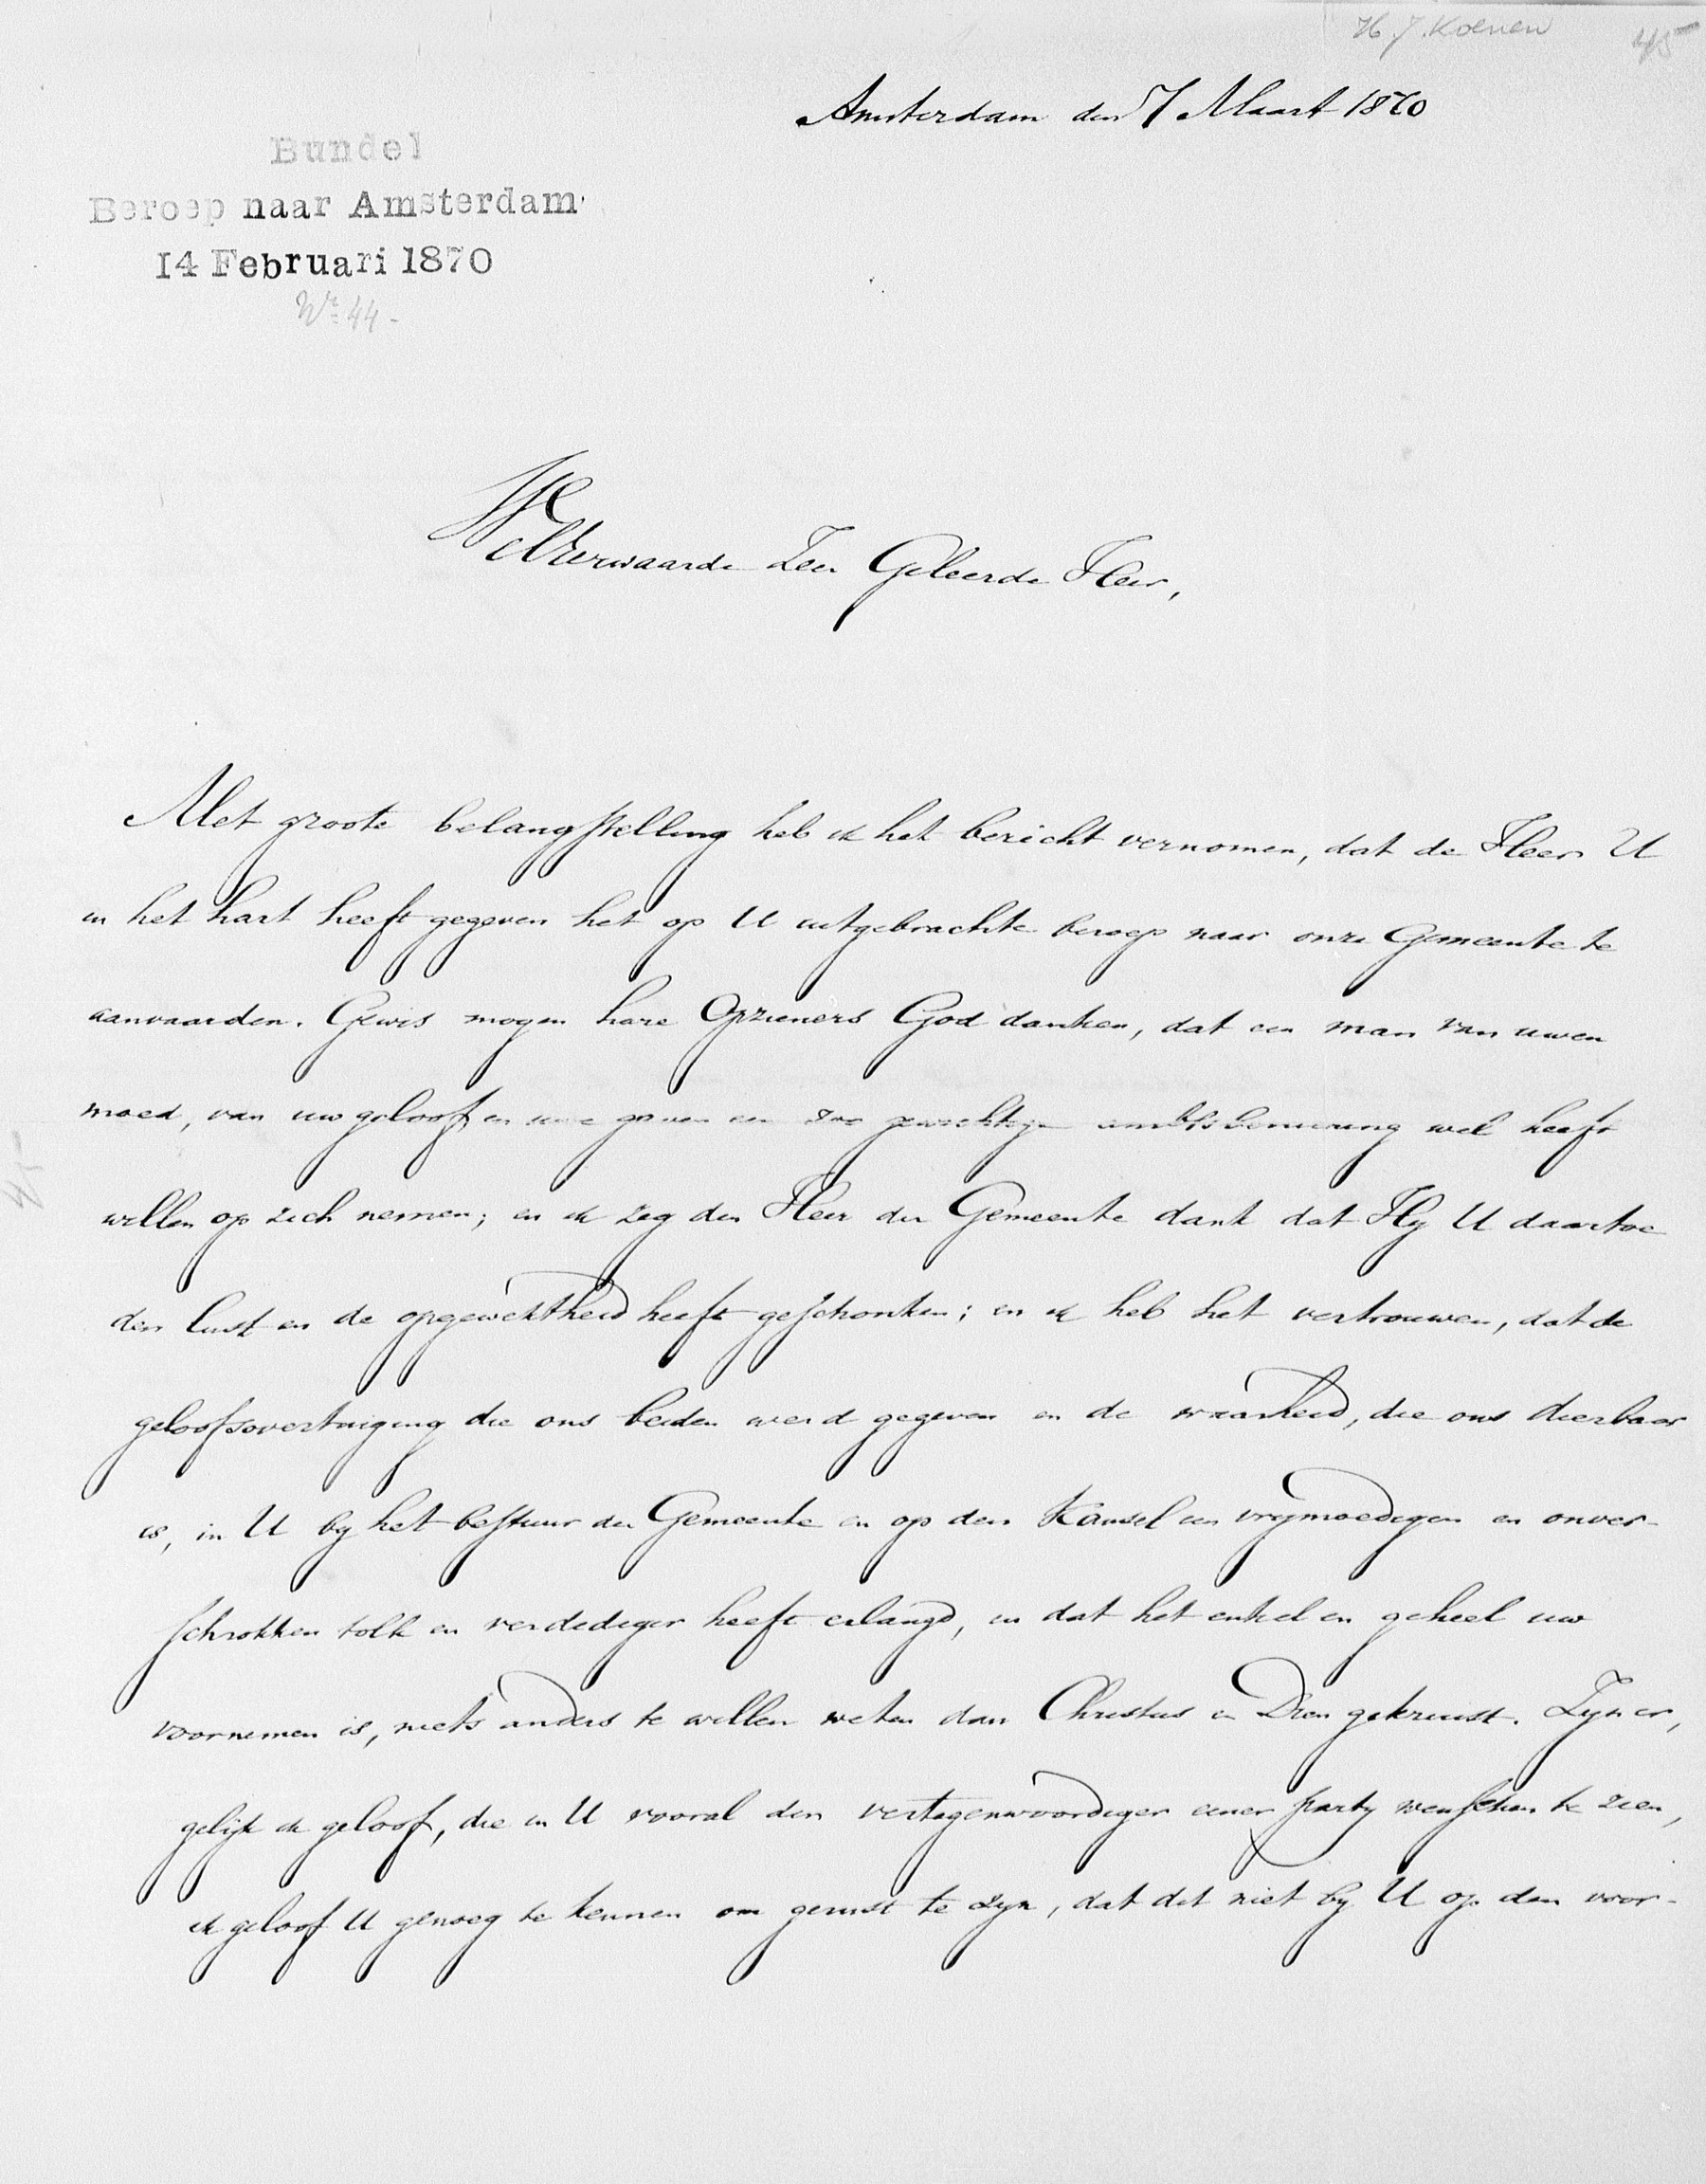 H. J. Koenen
45
Amsterdam den 7 Maart 1870
Bundel
Beroep naar Amsterdam
14 Februari 1870
No 44-
WelEerwaarde Zeer Geleerde Heer,
Met groote belangstelling heb ik het bericht vernomen, dat de Heer U
in het hart heeft gegeven het op U uitgebrachte beroep naar onze Gemeente te
aanvaarden. Gewis mogen hare Opzieners God danken, dat een man van uwen
moed, van uw geloof en uwe gaven een zoo gewichtige ambtsbediening wel heeft
willen op zich nemen; en ik zeg den Heer der Gemeente dank dat Hy U daartoe
den lust en de opgewektheid heeft geschonken; en ik heb het vertrouwen, dat de
geloofsovertuiging die ons beiden werd gegeven en de waarheid, die ons dierbaar
is, in U by het bestuur der Gemeente en op den Kansel een vrymoedigen en onver-
schrokken tolk en verdediger heeft erlangd, en dat het enkel en geheel uw
voornemen is, niets anders te willen weten dan Christus en Dien gekruist. Zyn er,
gelijk ik geloof, die in U vooral den vertegenwoordiger eener party wenschen te zien,
ik geloof U genoeg te kennen om gerust te zyn, dat dit niet by U op den voor-